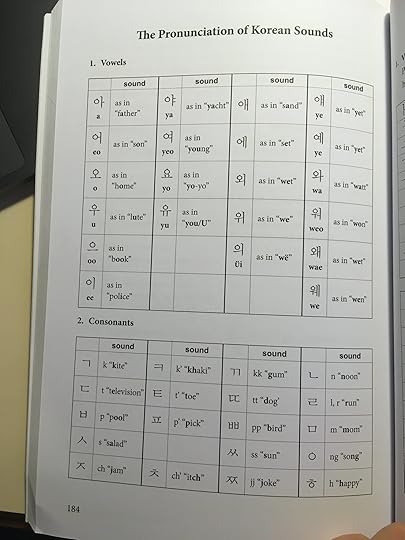 The Pronunciation of Korean Sounds
1. Vowels
sound sound sound sound
아 a as in "father" 야 ya as in "yacht" 애 as in "sand" 얘 ye as in "yet"
어 eo as in "son" 여 yeo as in "young" 에 as in "set" 예 ye as in "yet"
오 o as in "home" 요 yo as in "yo-yo" 외 as in "wet" 와 wa as in "watt"
우 u as in "lute" 유 yu as in "you/U" 위 as in "we" 워 weo as in "won"
으 oo as in "book" 의 üi as in "wë" 왜 wae as in "wet"
이 ee as in "police" 웨 we as in "wen"
2. Consonants
sound sound sound sound
ㄱ k "kite" ㅋ k' "khaki" ㄲ kk "gum" ㄴ n "noon"
ㄷ t "television" ㅌ t' "toe" ㄸ tt "dog' ㄹ l, r "run"
ㅂ p "pool" ㅍ p' "pick" ㅃ pp "bird" ㅁ m "mom"
ㅅ s "salad" ㅆ ss "sun" ㅇ ng "song"
ㅈ ch "jam" ㅊ ch' "itch" ㅉ jj "joke" ㅎ h "happy"
184